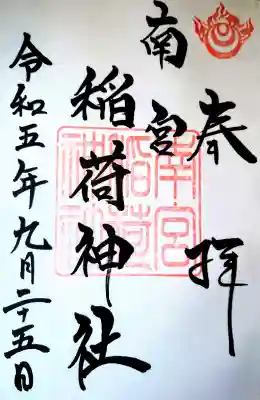 奉拝
南宮
稲荷神社
令和五年九月二十五日
南宮稲荷神社